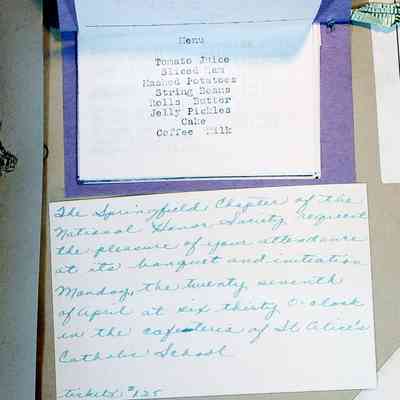 Menu
Tomato Juice
Sliced Ham
Mashed Potatoes
String Beans
Rolls Butter
Jelly Pickles
Cake
Coffee Milk
The Springfield Chapter of the
National Honor Society request
the pleasure of your attendance
at its banquet and initiation
Monday, the twenty seventh
of April at six thirty O'clock
in the cafeteria of St Alice's
Catholic School
tickets $1.25